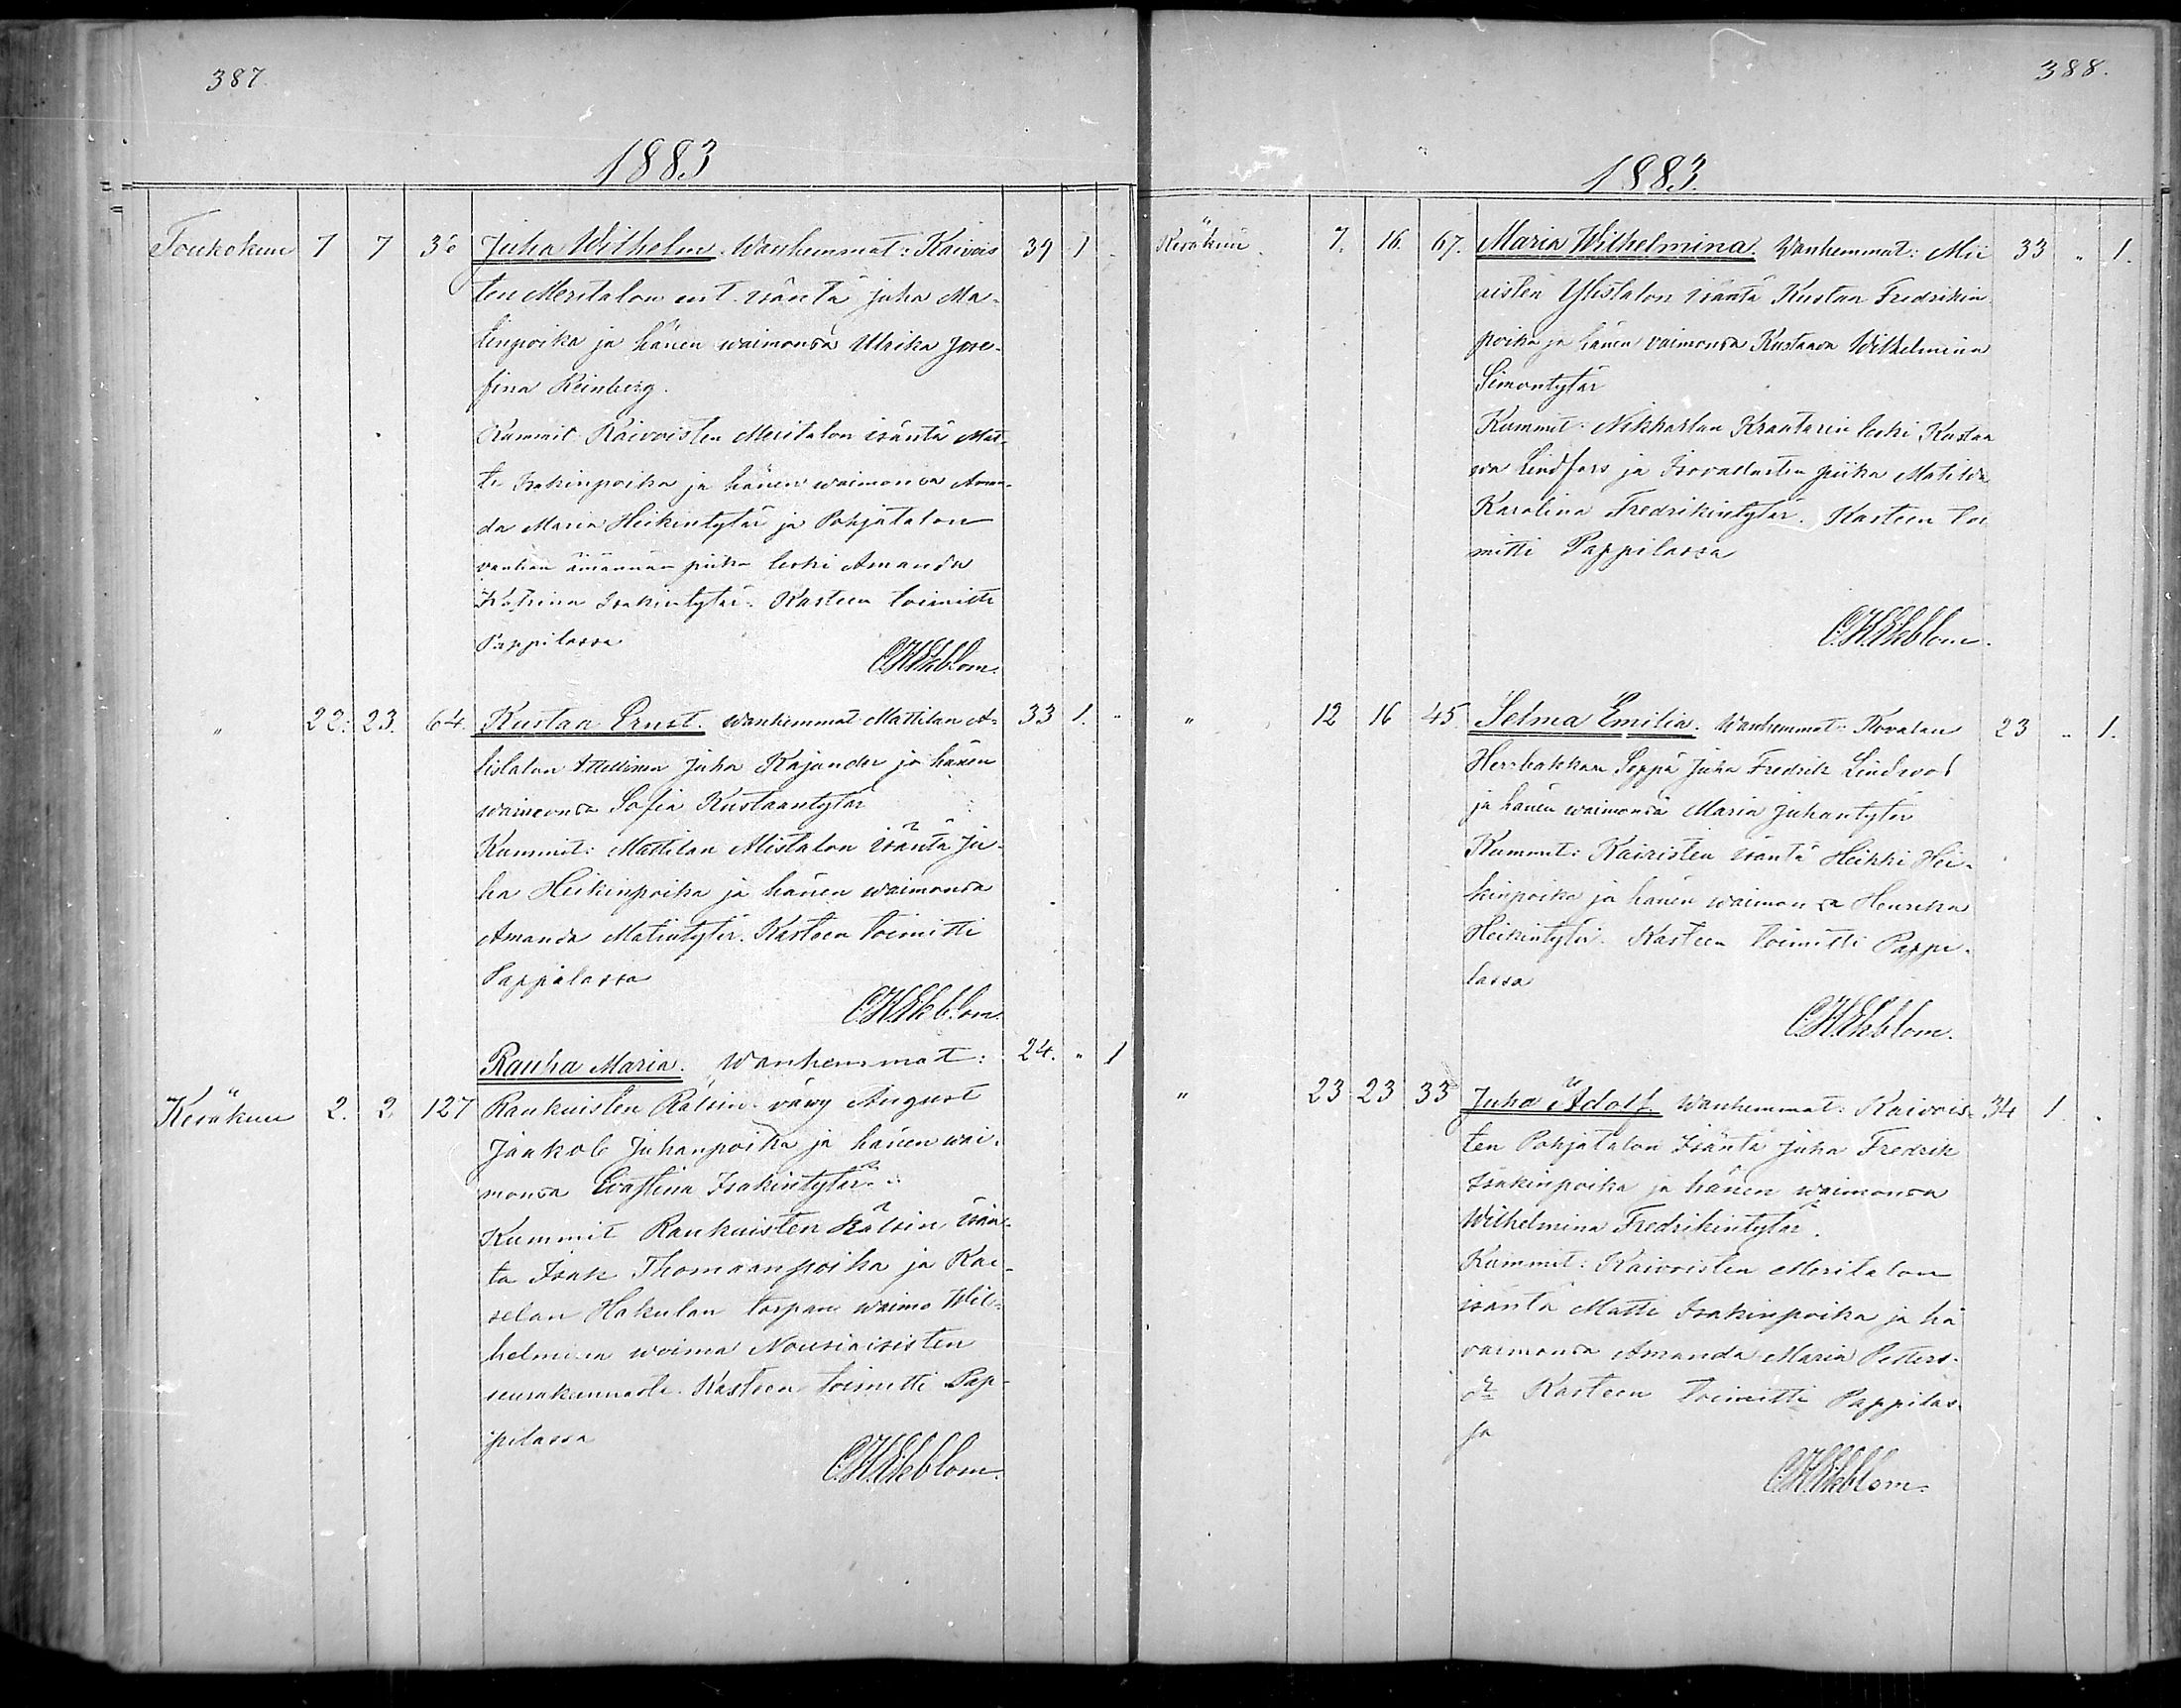 387.
1883
Toukokuu 7 7 36 Juha Wilhelm. Wanhemmat: Kaivois 39 1
ten Meritalon ent. isäntä Juha Ma-
tinpoika ja hänen waimonsa Ulrika Jose-
fina Reinberg.
Kummit Kaivoisten Meritalon isäntä Mat-
ti Isakinpoika ja hänen waimonsa Aman-
da Maria Heikintytär ja Pohjatalon
vanhan emännän piika leski Amanda
Katrina Isakintytär. Kasteen toimitti
Pappilassa
C.H.Ekblom.
" 22. 23. 64 Kustaa Ernst. Wanhemmat Mattilan A- 33 1. "
listalon Juha Kajander ja hänen
waimonsa Sofia Kustaantytär
Kummit: Mattilan Alistalon isäntä Ju-
ha Heikinpoika ja hänen waimonsa
Amanda Matintytär. Kasteen toimitti
Pappilassa
C.H.Ekblom.
Rauha Maria. Wanhemmat: 24. " 1
Kesäkuu 2. 2. 127 Raukuisten Rätsin vävy August
Jaakob Juhanpoika ja hänen wai-
monsa Evastina Isakintytär
Kummit Raukuisten Rätsin isän-
tä Isak Thomaanpoika ja Kai-
selan Hakulan torpan waimo Wil-
helmina Nousiaisisten
seurakunnasta. Kasteen toimitti Pap-
pilassa
C.H.Ekblom.
388.
1883.
Kesäkuu 7. 16. 67. Maria Wilhelmina. Wanhemmat: Mii 33 " 1.
naisten Ylistalon isäntä Kustaa Fredrikin
poika ja hänen vaimonsa Kustaava Wilhelmina
Simontytär
Kummit: Nikkarlan Krantarin leski Kustaa
va Lindfors ja piika Matilda
Karolina Fredrikintytär. Kasteen toi
mitti Pappilassa
C.H.Ekblom.
" 12 16 45. Selma Emilia. Wanhemmat: 23 " 1.
Seppä Juha Fredrik Lindroos
ja hänen waimonsa Maria Juhantytär
Kummit: Kairisten isäntä Heikki Hei-
kinpoika ja hänen waimonsa Henrika
Heikintytär. Kasteen toimitti Pappi-
lassa
C.H.Ekblom.
" 23 23 33 Juha Adolf Wanhemmat: Kaivois- 34 1 .
ten Pohjatalon Isäntä Juha Fredrik
Isakinpoika ja hänen waimonsa
Wilhelmina Fredrikintytär.
Kummit: Kaivoisten Meritalon
isäntä Matti Isakinpoika ja hä
vaimonsa Amanda Maria Peters-
dr Kasteen toimitti Pappilas-
sa
C.H.Ekblom.